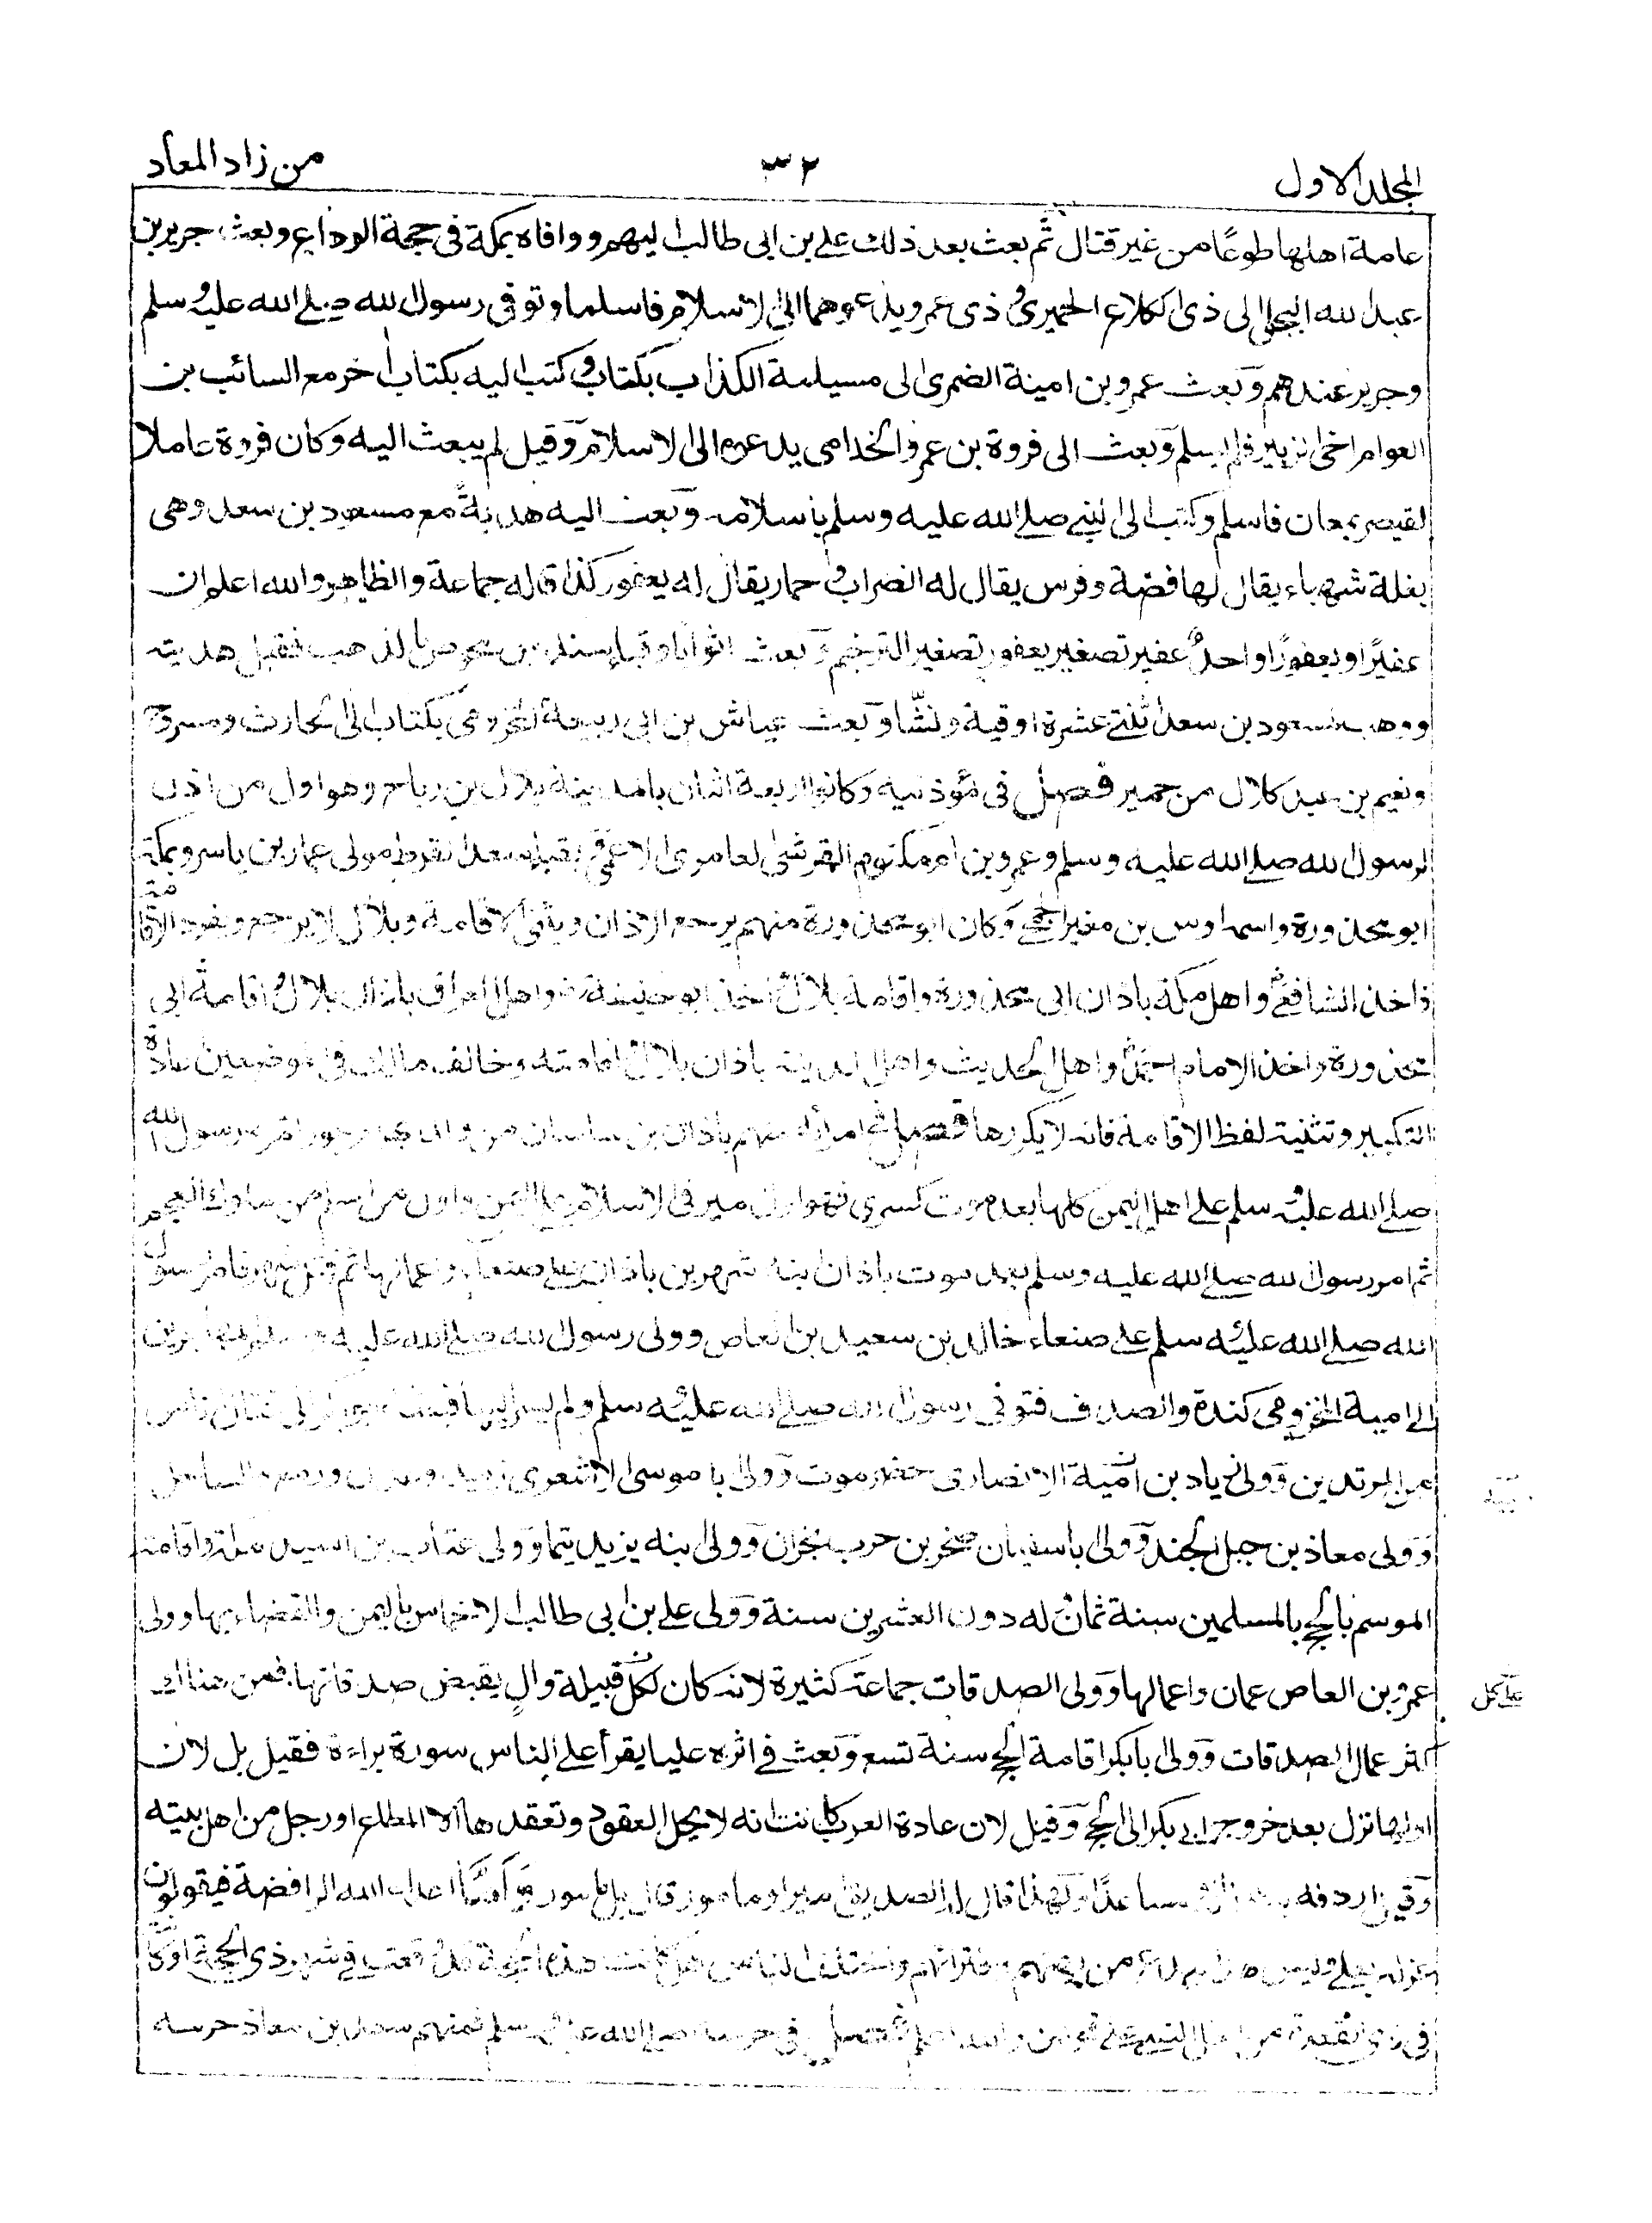 المجلد الاول
٣٢
من زاد المعاد
عامة اهلها طوعًا من غير قتال ثم بعث بعد ذلك على بن ابى طالب اليهم ووافاه بمكة فى حجة الوداع وبعث جرير بن
عبد الله البجلى الى ذى الكلاع الحميرى و ذى عمرو يدعوهما الى الاسلام فاسلما وتوفى رسول الله صلى الله عليه وسلم
وجرير عندهم وبعث عمرو بن امية الضمرى الى مسيلمة الكذاب بكتاب وكتب اليه بكتاب اخر مع السائب بن
العوام اخى الزبير فلم يسلم وبعث الى فروة بن عمرو الجذامى يدعوه الى الاسلام وقيل لم يبعث اليه وكان فروة عاملا
لقيصر بمعان فاسلم وكتب الى النبى صلى الله عليه وسلم باسلامه وبعث اليه هدية مع مسعود بن سعد وهى
بغلة شهباء يقال لها فضة وفرس يقال له الضراب وحمار يقال له يعفور كذا قاله جماعة والظاهر والله اعلم ان
عفيرًا ويعفورًا واحد عفير تصغير يعفور تصغير الترخيم وبعث اثوابا وقباء سندس مخوص بالذهب فقبل هديته
ووهب لمسعود بن سعد اثنتى عشرة اوقية ونشّا وبعث عياش بن ابى ربيعة المخزومى بكتاب الى الحارث ومسروح
ونعيم بن عبد كلال من حمير فصل فى مؤذنيه وكانوا اربعة اثنان بالمدينة بلال بن رباح وهو اول من اذن
لرسول الله صلى الله عليه وسلم وعمرو بن ام مكتوم القرشى العامرى الاعمى وبقباء سعد القرظ مولى عمار بن ياسر وبمكة
ابو محذورة واسمه اوس بن مغير الجمحى وكان ابو محذورة منهم يرجع الاذان ويثنى الاقامة وبلال لا يرجع ويفرد الاقامة
فاخذ الشافعى واهل مكة باذان ابى محذورة واقامة بلال واخذ ابو حنيفة واهل العراق باذان بلال واقامة ابى
محذورة واخذ الامام احمد واهل الحديث واهل المدينة باذان بلال واقامته وخالف مالك فى الموضعين اعادة
التكبير وتثنية لفظ الاقامة فانه لا يكررها فصل فى امرائه منهم باذان بن ساسان من ولد بهرام جور امره رسول الله
صلى الله عليه وسلم على اهل اليمن كلها بعد موت كسرى فهو اول امير فى الاسلام على اليمن واول من اسلم من ملوك العجم
ثم امر رسول الله صلى الله عليه وسلم بعد موت باذان ابنه شهر بن باذان على صنعاء واعمالها ثم قتل شهر فامر رسول
الله صلى الله عليه وسلم على صنعاء خالد بن سعيد بن العاص وولى رسول الله صلى الله عليه وسلم المهاجر بن
ابى امية المخزومى كندة والصدف فتوفى رسول الله صلى الله عليه وسلم ولم يسر اليها فبعثه ابو بكر الى قتال ناس
من المرتدين وولى زياد بن امية الانصارى حضرموت وولى ابا موسى الاشعرى زبيد وعدن ورمع والساحل
وولى معاذ بن جبل الجند وولى ابا سفيان صخر بن حرب نجران وولى ابنه يزيد تيما وولى عتاب بن اسيد مكة واقامة
الموسم بالحج بالمسلمين سنة ثمان وله دون العشرين سنة وولى على بن ابى طالب الاخماس باليمن والقضاء بها وولى
عمرو بن العاص عمان واعمالها وولى الصدقات جماعة كثيرة لانه كان لكل قبيلة والٍ يقبض صدقاتها فمن هنا
على كل
كثر عمال الصدقات وولى ابا بكر اقامة الحج سنة تسع وبعث فى اثره عليا يقرأ على الناس سورة براءة فقيل بل لان
اولها نزل بعد خروج ابى بكر الى الحج وقيل لان عادة العرب كانت انه لا يحل العقود وتعقدها الا المطاع او رجل من اهل بيته
وقيل اردفه به عونا له ومساعدًا ولهذا قال له الصديق امير او مامور قال بل مامور واما اعداء الله الرافضة فيقولون
عزله بعلى وليس هذا ببدع من بهتهم وافترائهم واختلف الناس هل كانت هذه الحجة قد وقعت فى شهر ذى الحجة او كانت
فى ذى القعدة من اجل النسئ على قولين والله اعلم فصل فى حرسه صلى الله عليه وسلم فمنهم سعد بن معاذ حرسه